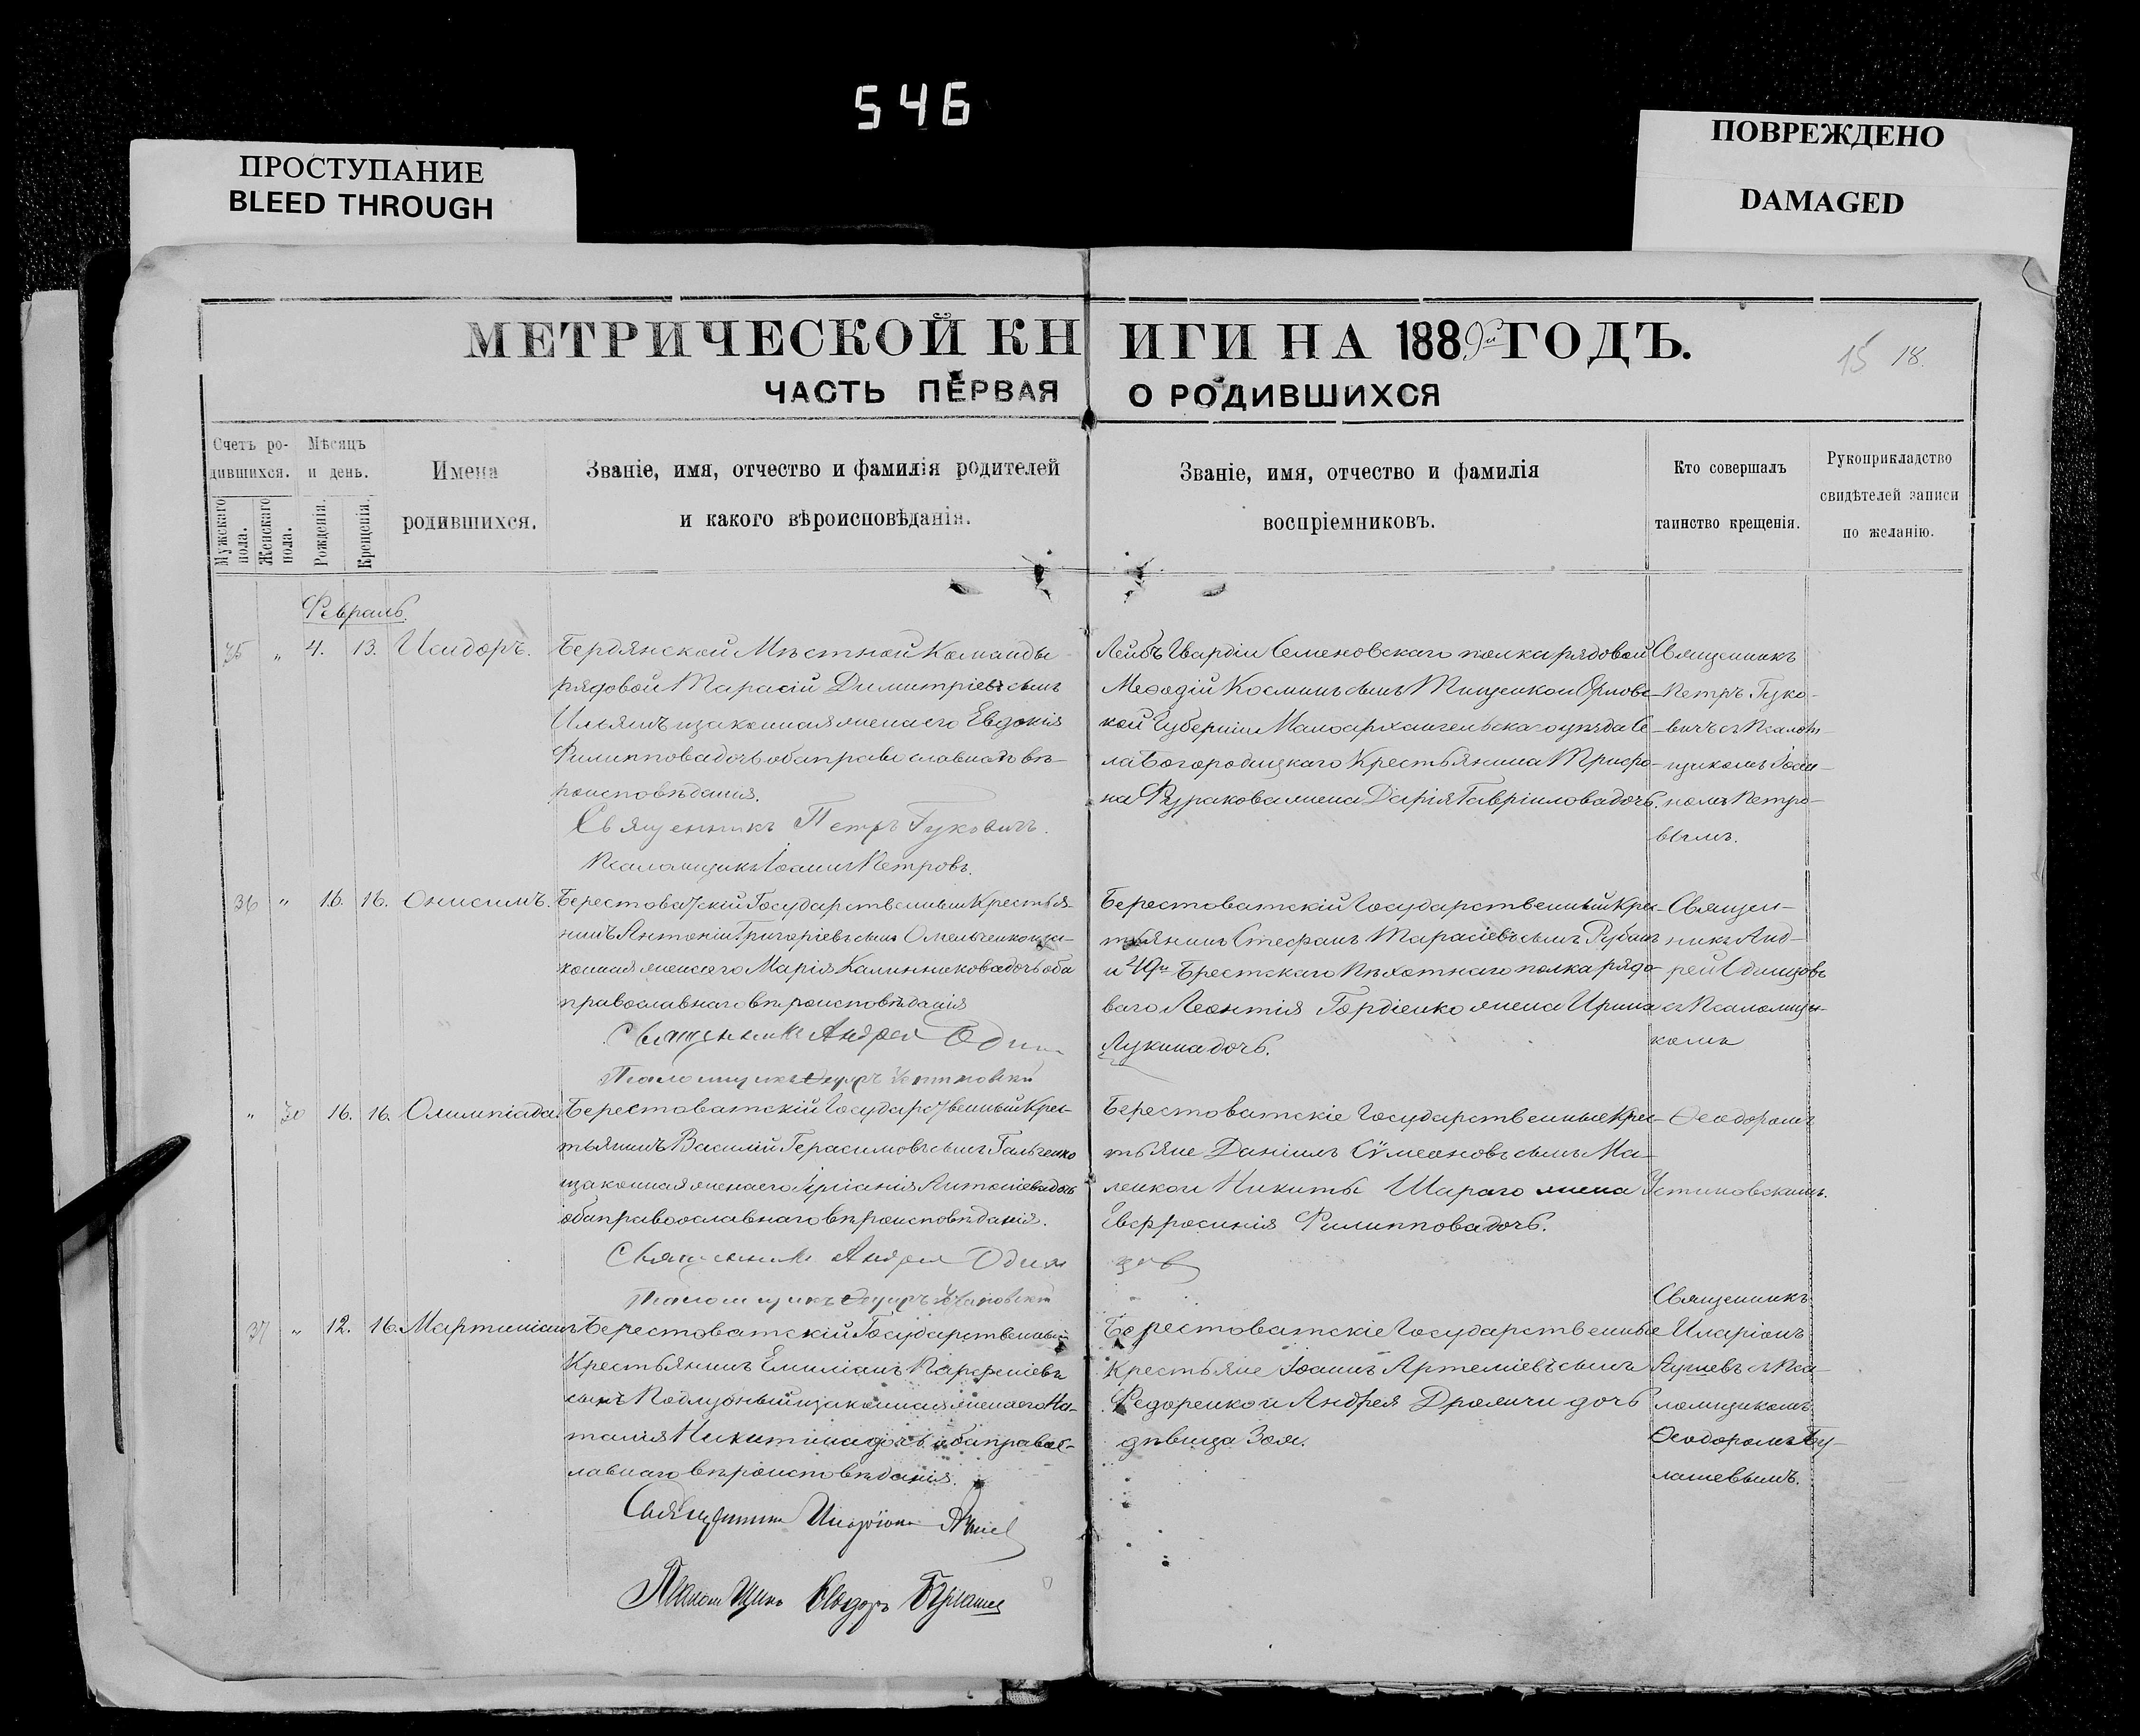 546
ПРОСТУПАНИЕ
BLEED THROUGH
ПОВРЕЖДЕНО
DAMAGED
МЕТРИЧЕСКОЙ КНИГИ НА 1889й ГОДЪ.
15 18.
ЧАСТЬ ПЕРВАЯ О РОДИВШИХСЯ
Счетъ ро-
дившихся.
Мужскаго пола.
Женскаго пола.
Мѣсяцъ
и день.
Рожденія.
Крещенія.
Имена
родившихся.
Званіе, имя, отчество и фамилія родителей
и какого вѣроисповѣданія.
Званіе, имя, отчество и фамилія
воспріемниковъ.
Кто совершалъ
таинство крещенія.
Рукоприкладство
свидѣтелей записи
по желанію.
Февраль.
35 " 4. 13. Исидоръ.
Бердянской Мѣстной Команды
рядовой Тарасій Димитріевъ сынъ
Ильяшъ и законная жена его Евдокія
Филиппова дочь оба православнаго вѣ-
роисповѣданія.
Священникъ Петръ Гуковичъ.
Псаломщикъ Іоаннъ Петровъ.
Лейбъ Гвардіи Семеновскаго полка рядовой
Меѳодій Косминъ сынъ Тищенко и Орловс-
кой Губерніи Малоархангельскаго уѣзда Се-
ла Богородицкаго Крестьянина Трифо-
на Фурсакова жена Дарія Гавріилова дочь.
Священникъ
Петръ Гуко-
вичъ съ Псалом-
щикомъ Іоан-
номъ Петро-
вымъ.
36 " 16. 16. Онисимъ.
Берестоватскій Государственный Крестья-
нинъ Антоній Григоріевъ сынъ Омельченко и за-
конная жена его Марія Калинникова дочь оба
православнаго вѣроисповѣданія
Священникъ Андрей Один
Псаломщикъ Ѳеодоръ Устиновскій
Берестоватскій Государственный Крес-
тьянинъ Стефанъ Тарасіевъ сынъ Рубанъ
и 49го Брестскаго Пѣхотнаго полка рядо-
ваго Леонтія Гордіенко жена Ирина
Лукина дочь.
Священ-
никъ Анд-
рей Одинцовъ
съ Псаломщи-
комъ
" 30 16. 16. Олимпіада.
Берестоватскій Государственный Крес-
тьянинъ Василій Герасимовъ сынъ Гальченко
и законная жена его Иріанія Антоніева дочь
оба православнаго вѣроисповѣданія.
Священникъ Андрей Один
цов
Псаломщикъ Ѳеодоръ Устиновскій
Берестоватскіе Государственные Крес-
тьяне Даніилъ Сѵмеоновъ сынъ Ма-
ленко и Никиты Шараго жена
Евфросинія Филиппова дочь.
Ѳеодоромъ
Устиновскимъ.
37 " 12. 16. Мартиніанъ
Берестоватскій Государственный
Крестьянинъ Емиліанъ Парѳеніевъ
сынъ Подлубный и законная жена его На-
талія Никитина дочь оба правос-
лавнаго вѣроисповѣданія.
Священникъ Иларіонъ
Псаломщикъ Ѳеодоръ Булашев
Берестоватскіе Государственные
Крестьяне Іоаннъ Артеміевъ сынъ
Федоренко и Андрея дочь
дѣвица Зоя.
Священникъ
Иларіонъ
съ Пса-
ломщикомъ
Ѳеодоромъ Бу-
лашевымъ.